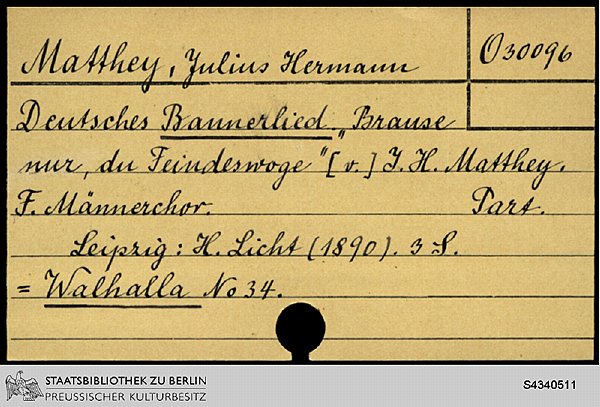 Matthey, Julius Hermann
O 30096
Deutsches Bannerlied „Brause
nur, du Feindeswoge" [v.] J. H. Matthey.
F. Männerchor. Part.
Leipzig: H. Licht (1890). 3 S.
= Walhalla No 34.
STAATSBIBLIOTHEK ZU BERLIN
PREUSSISCHER KULTURBESITZ
S4340511